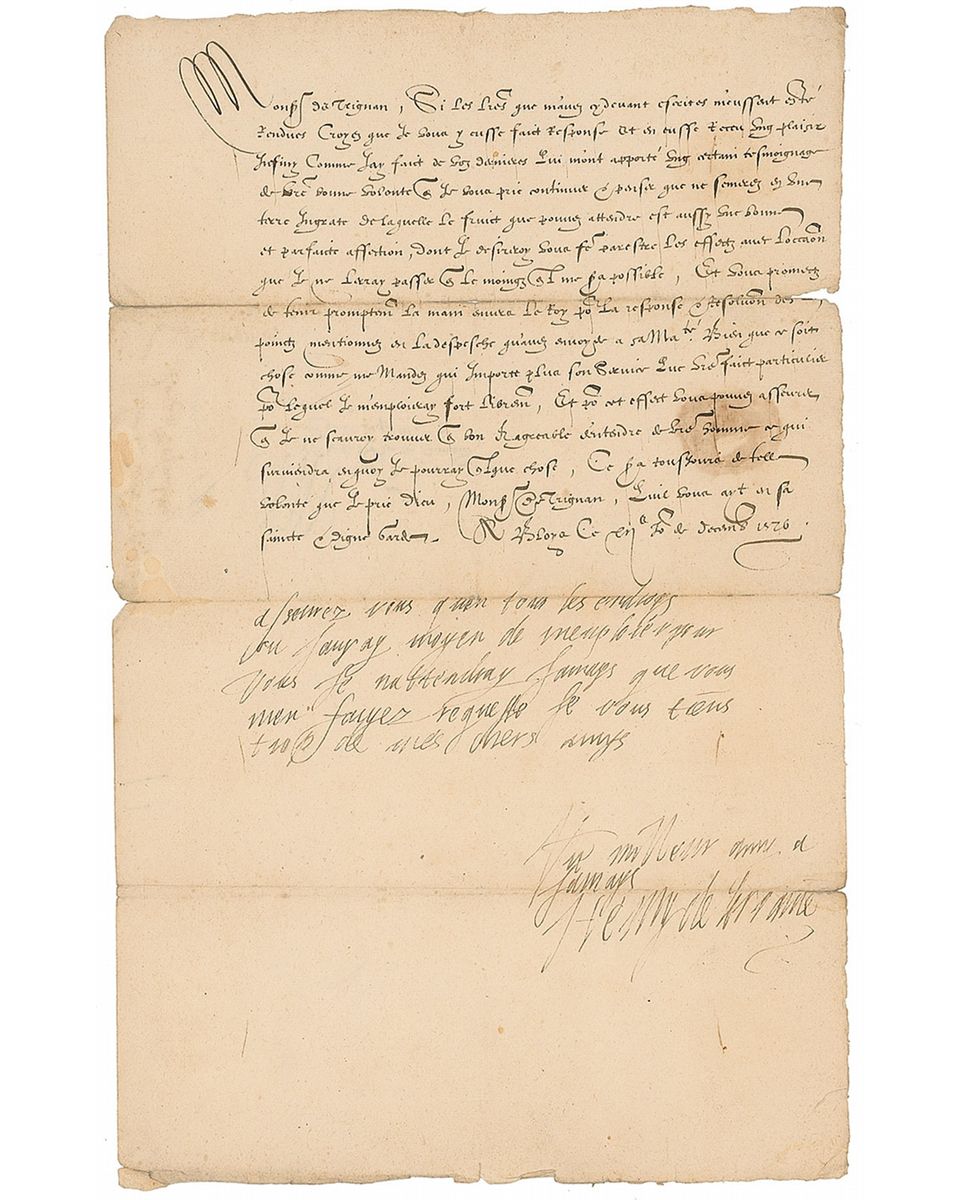 Mons^r de Trignan, Si les l̃res que m'avez cy devant escrites m'eussent esté
Rendues Croyez que Je vous y eusse faict Response Et en eusse Receu ung plaisir
Infiny Comme Jay faict de voz dernieres Qui m'ont apporté ung certain tesmoignage
de v̅re bonne volonté q Je vous prie continuer & penser que ne semerez en une
terre Ingrate de laquelle le fruict que pouvez attendre est aussy une bonne
et parfaicte affection, dont Je desireroy vous f̃e parestre les effectz avec loccaõn
que Je ne lerray passer q le moingz ql me s̃a possible, Et vous prometz
de tenir promptem̃ la main envers le Roy po^r la response & Resoluõn des
pointz mentionnez en la despesche qu'avez envoyée a sa Ma^té. Bien que ce soit
chose comme me Mandez qui Importe plus son Service que v̅re faict particulier
po^r lequel Je m'emploieray fort librem̃, Et po^r cet effect vous pouvez asseurer
q Je ne scauroy trouver q bon & agreable d'entendre de v̅re homme ce qui
surviendra en quoy Je pourray qlque chose, Ce s̃a tousjours de telle
volonté que Je prie Dieu, Mons^r de Trignan, Quil vous ayt en sa
saincte & digne garde. A Bloys Ce xvj^e Jo^r de decemb̃ 1576
asseurez vous quen tous les endroys
ou Jauray moyen de memploier pour
vous Je nattendray Jamays que vous
men facyez requeste Je vous tiens
trop de mes chers amys
Vre milleur amy a
Jamays
Henry de Lorraine